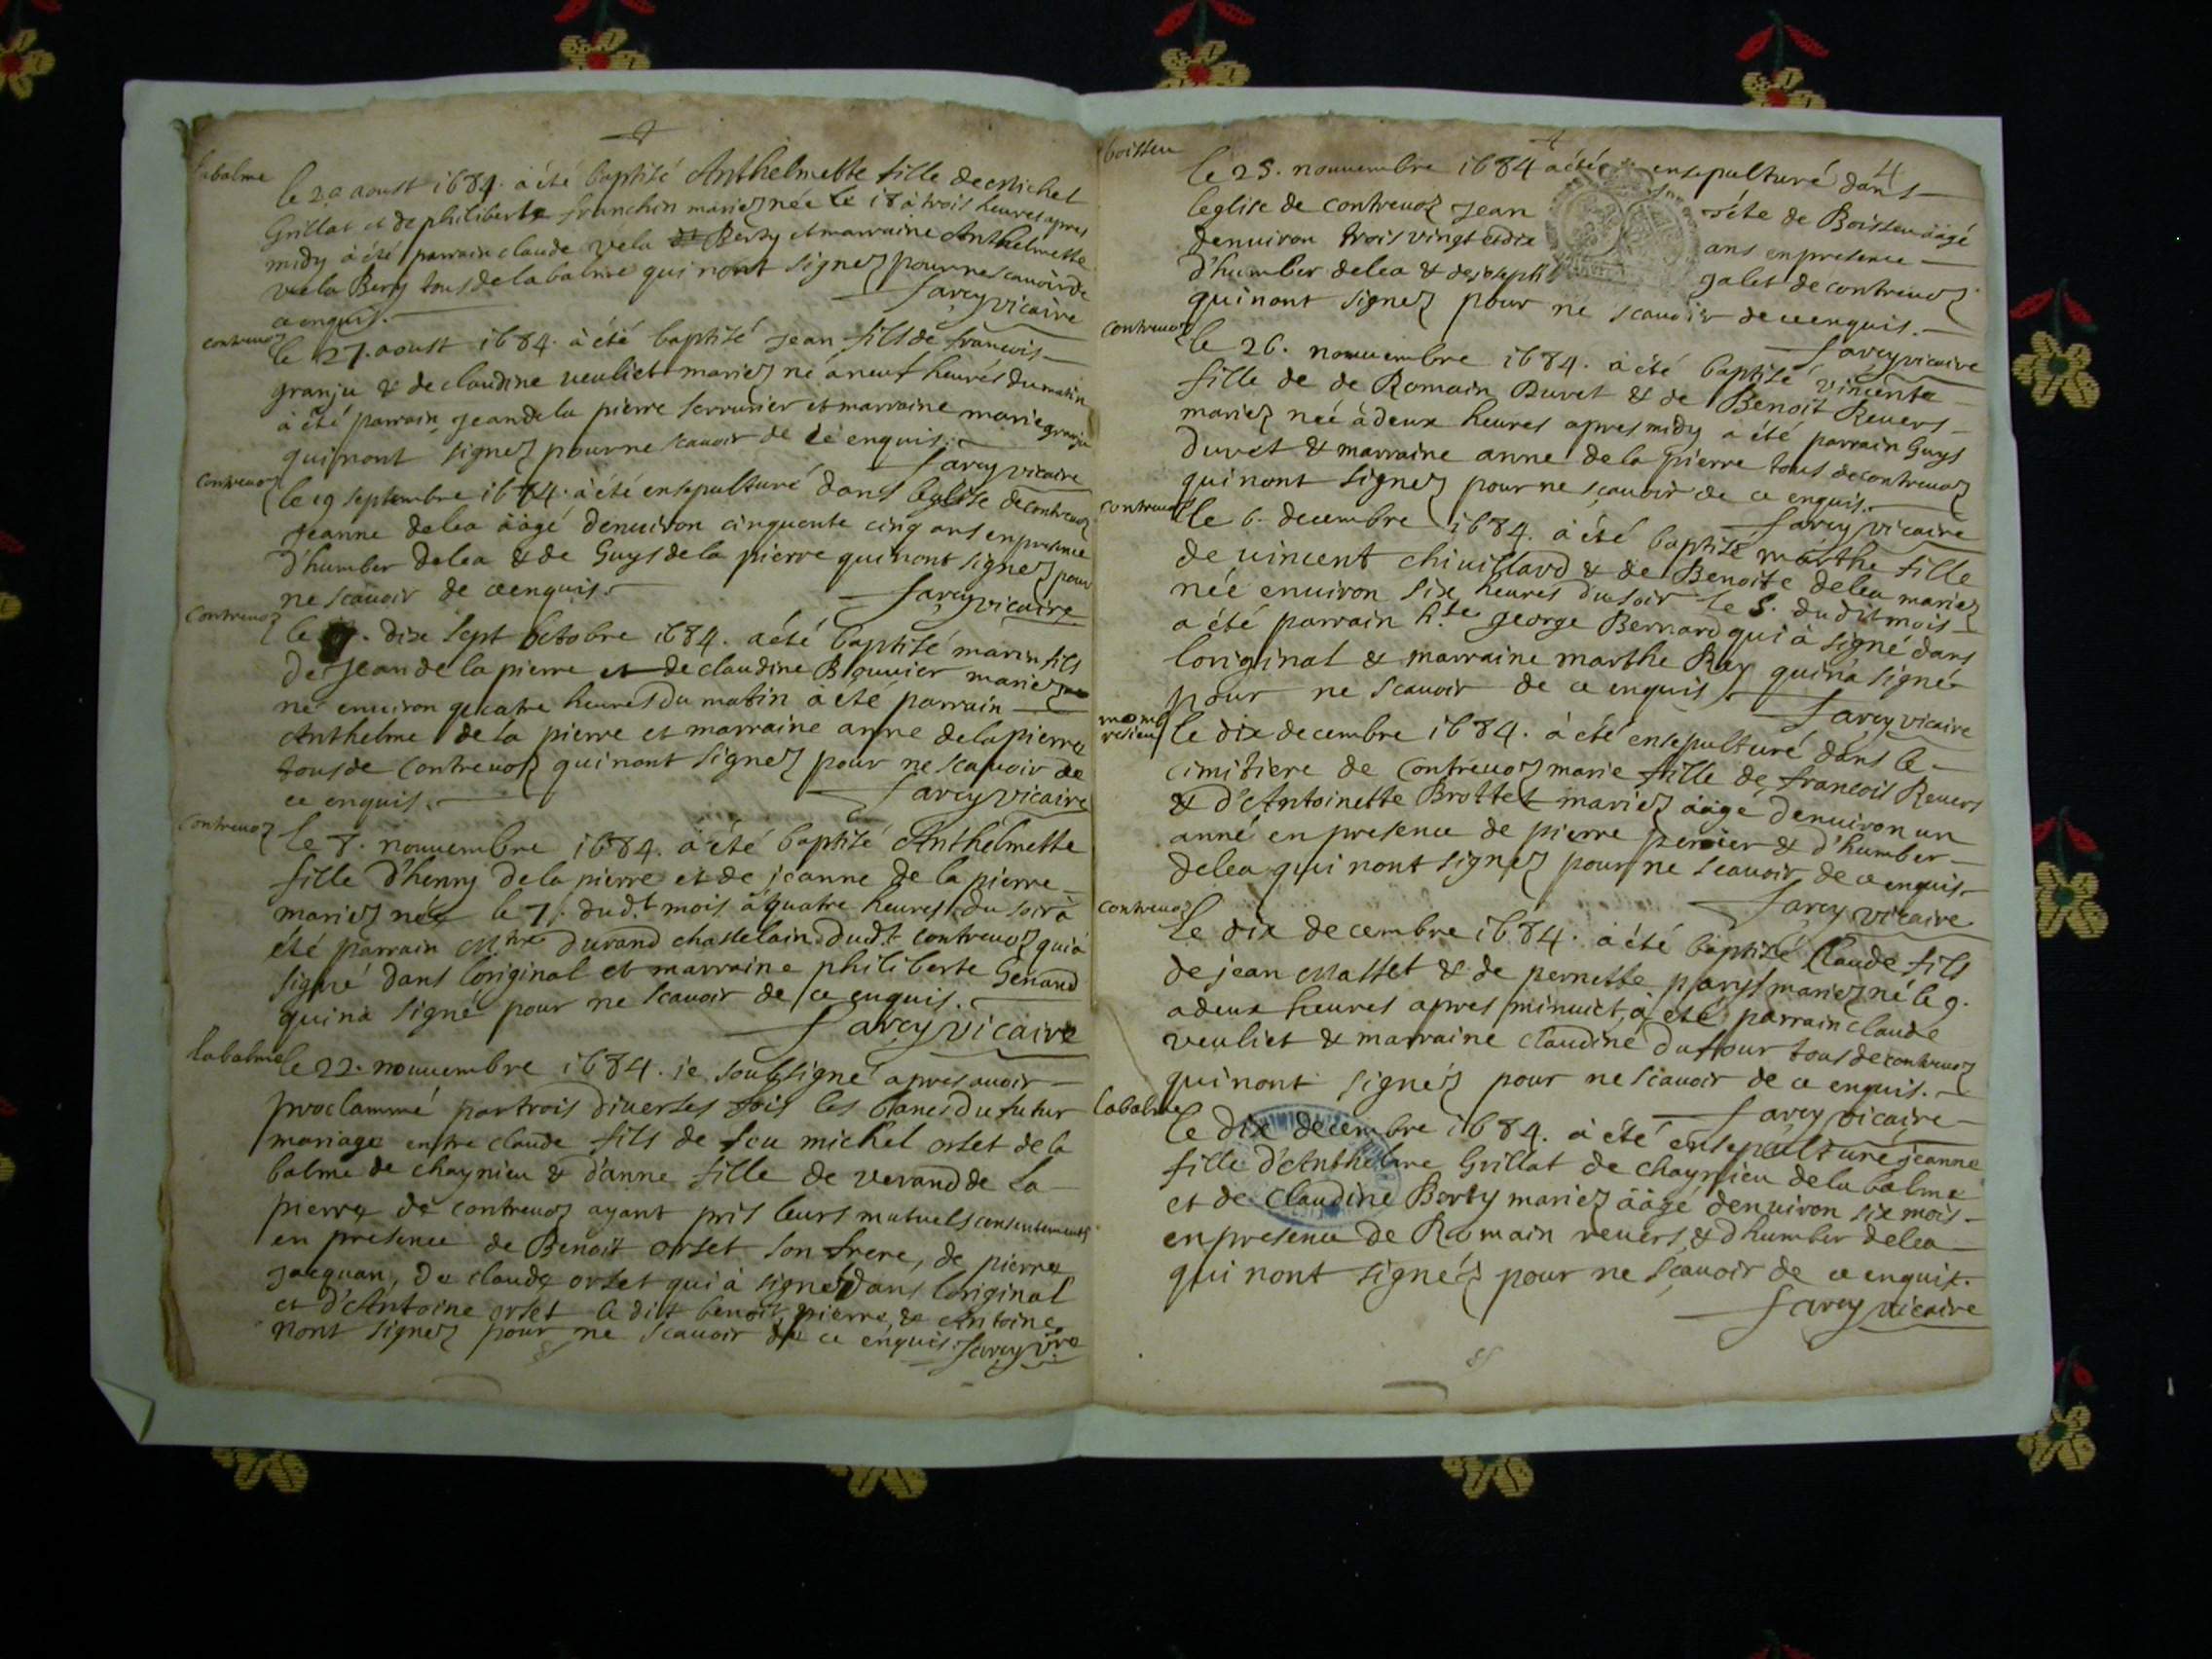 labalme
le 20 aoust 1684. à été baptisé Anthelmette fille de Michel
Grillat et de philiberte franchin mariez née le 18 à trois heures apres
midy à été parrain claude vela Berty et marraine Anthelmette
vela Berty tous de labalme qui nont signez pour ne scauoir de
ce enquis.
farcy vicaire
contreuoz
le 27. aoust 1684. à été baptisé jean fils de francois
granju & de claudine ueuliet mariez né à neuf heures du matin
à été parrain jean de la pierre serrurier et marraine marie granju
qui nont signez pour ne scauoir de ce enquis.
farcy vicaire
contreuoz
le 19 septembre 1684. à été ensepulturé dans leglise de contreuoz
jeanne delea ààgé denuiron cinquente cinq ans en presence
d'humber delea & de Guys de la pierre qui nont signez pour
ne scauoir de ce enquis.
farcy vicaire
contreuoz
le dix sept octobre 1684. à été baptisé marin fils
de jean de la pierre et de claudine Brouuier mariez
né enuiron quatre heures du matin à été parrain
Anthelme de la pierre et marraine anne de la pierre
tous de contreuoz qui nont signez pour ne scauoir de
ce enquis.
farcy vicaire
contreuoz
le 8. nouuembre 1684. à été baptisé Anthelmette
fille d'henry de la pierre et de jeanne de la pierre
mariez née le 7. dud.t mois à quatre heures du soir à
été parrain M.tre Durand chastelain dud.t contreuoz qui à
signé dans loriginal et marraine philiberte Genand
qui na signé pour ne scauoir de ce enquis.
farcy vicaire
labalme
le 22. nouuembre 1684. je soubsigné apres auoir
proclammé par trois diuerses fois les bancs du futur
mariage entre claude fils de feu michel orset de la
balme de chaynieu & d'anne fille de verand de la
pierre de contreuoz ayant pris leurs mutuels consentements
en presence de Benoit orset son frere, de pierre
jacquan, de claude orset qui à signé dans loriginal
et d'Antoine orset ledit benoit, pierre, & Antoine
nont signez pour ne scauoir de ce enquis. farcy v.re
4
boissieu
le 25. nouuembre 1684 à été ensepulturé dans
leglise de contreuoz jean séte de Boissieu ààgé
denuiron trois vingt et dix ans en presence
d'humber delea & de joseph jalet de contreuoz
qui nont signez pour ne scauoir de ce enquis.
farcy vicaire
contreuoz
le 26. nouuembre 1684. à été baptisé vincente
fille de de Romain Duret & de Benoit Reuers
mariez née à deux heures apres midy à été parrain Guys
Duret & marraine anne de la pierre tous de contreuoz
qui nont signez pour ne scauoir de ce enquis.
farcy vicaire
contreuoz
le 6. decembre 1684. à été baptisé marthe fille
de uincent chiuillard & de Benoite delea mariez
née enuiron six heures du soir le 5. dudit mois
a été parrain h.te george Bernard qui à signé dans
loriginal & marraine marthe Rey qui na signé
pour ne scauoir de ce enquis.
farcy vicaire
le dix decembre 1684. à été ensepulturé dans le
cimitiere de contreuoz marie fille de francois Reuers
& d'Antoinette Brottet mariez ààgé denuiron un
anné en presence de pierre perrier & d'humber
delea qui nont signez pour ne scauoir de ce enquis.
farcy vicaire
contreuoz
le dix decembre 1684. à été baptisé Claude fils
de jean Masset & de pernette parys mariez né le 9.
a deux heures apres minuict, à eté parrain claude
veuliet & marraine claudine dufour tous de contreuoz
qui nont signéz pour ne scauoir de ce enquis.
farcy vicaire
labalme
le dix decembre 1684. à été ensepulturé jeanne
fille d'Anthelme Grillat de chaynieu de la balme
et de Claudine Berty mariez ààgé denuiron six mois
en presence de Romain reuers, & dhumber delea
qui nont signéz pour ne scauoir de ce enquis.
farcy vicaire